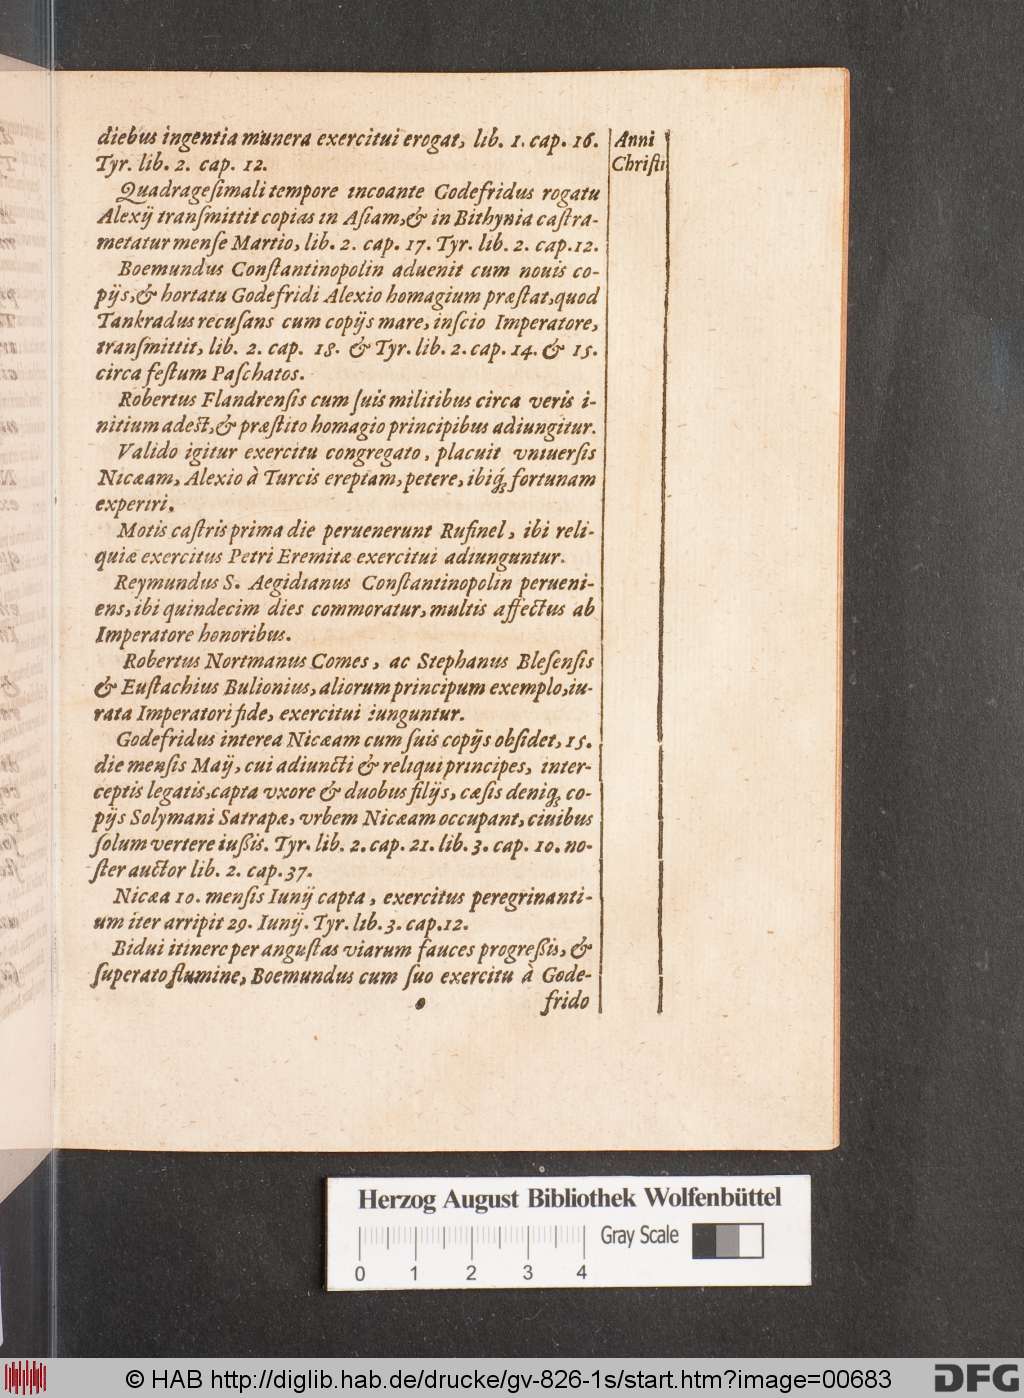 diebus ingentia munera exercitui erogat, lib. 1. cap. 16.
Tyr. lib. 2. cap. 12.
Quadragesimali tempore incoante Godefridus rogatu
Alexij transmittit copias in Asiam, & in Bithynia castra-
metatur mense Martio, lib. 2. cap. 17. Tyr. lib. 2. cap. 12.
Boemundus Constantinopolin aduenit cum nouis co-
pijs, & hortatu Godefridi Alexio homagium præstat, quod
Tankradus recusans cum copijs mare, inscio Imperatore,
transmittit, lib. 2. cap. 18. & Tyr. lib. 2. cap. 14. & 15.
circa festum Paschatos.
Robertus Flandrensis cum suis militibus circa veris i-
nitium adest, & præstito homagio principibus adiungitur.
Valido igitur exercitu congregato, placuit vniuersis
Nicæam, Alexio à Turcis ereptam, petere, ibiq́; fortunam
experiri.
Motis castris prima die peruenerunt Rufinel, ibi reli-
quiæ exercitus Petri Eremitæ exercitui adiunguntur.
Reymundus S. Aegidianus Constantinopolin perueni-
ens, ibi quindecim dies commoratur, multis affectus ab
Imperatore honoribus.
Robertus Nortmanus Comes, ac Stephanus Blesensis
& Eustachius Bulionius, aliorum principum exemplo, iu-
rata Imperatori fide, exercitui iunguntur.
Godefridus interea Nicæam cum suis copijs obsidet, 15.
die mensis Maij, cui adiuncti & reliqui principes, inter-
ceptis legatis, capta vxore & duobus filijs, cæsis deniq; co-
pijs Solymani Satrapæ, vrbem Nicæam occupant, ciuibus
solum vertere iußis. Tyr. lib. 2. cap. 21. lib. 3. cap. 10. no-
ster auctor lib. 2. cap. 37.
Nicæa 10. mensis Iunij capta, exercitus peregrinanti-
um iter arripit 29. Iunij. Tyr. lib. 3. cap. 12.
Bidui itinere per angustas viarum fauces progreßis, &
superato flumine, Boemundus cum suo exercitu à Gode-
frido
Anni
Christi
Herzog August Bibliothek Wolfenbüttel
Gray Scale
0 1 2 3 4
© HAB http://diglib.hab.de/drucke/gv-826-1s/start.htm?image=00683
DFG